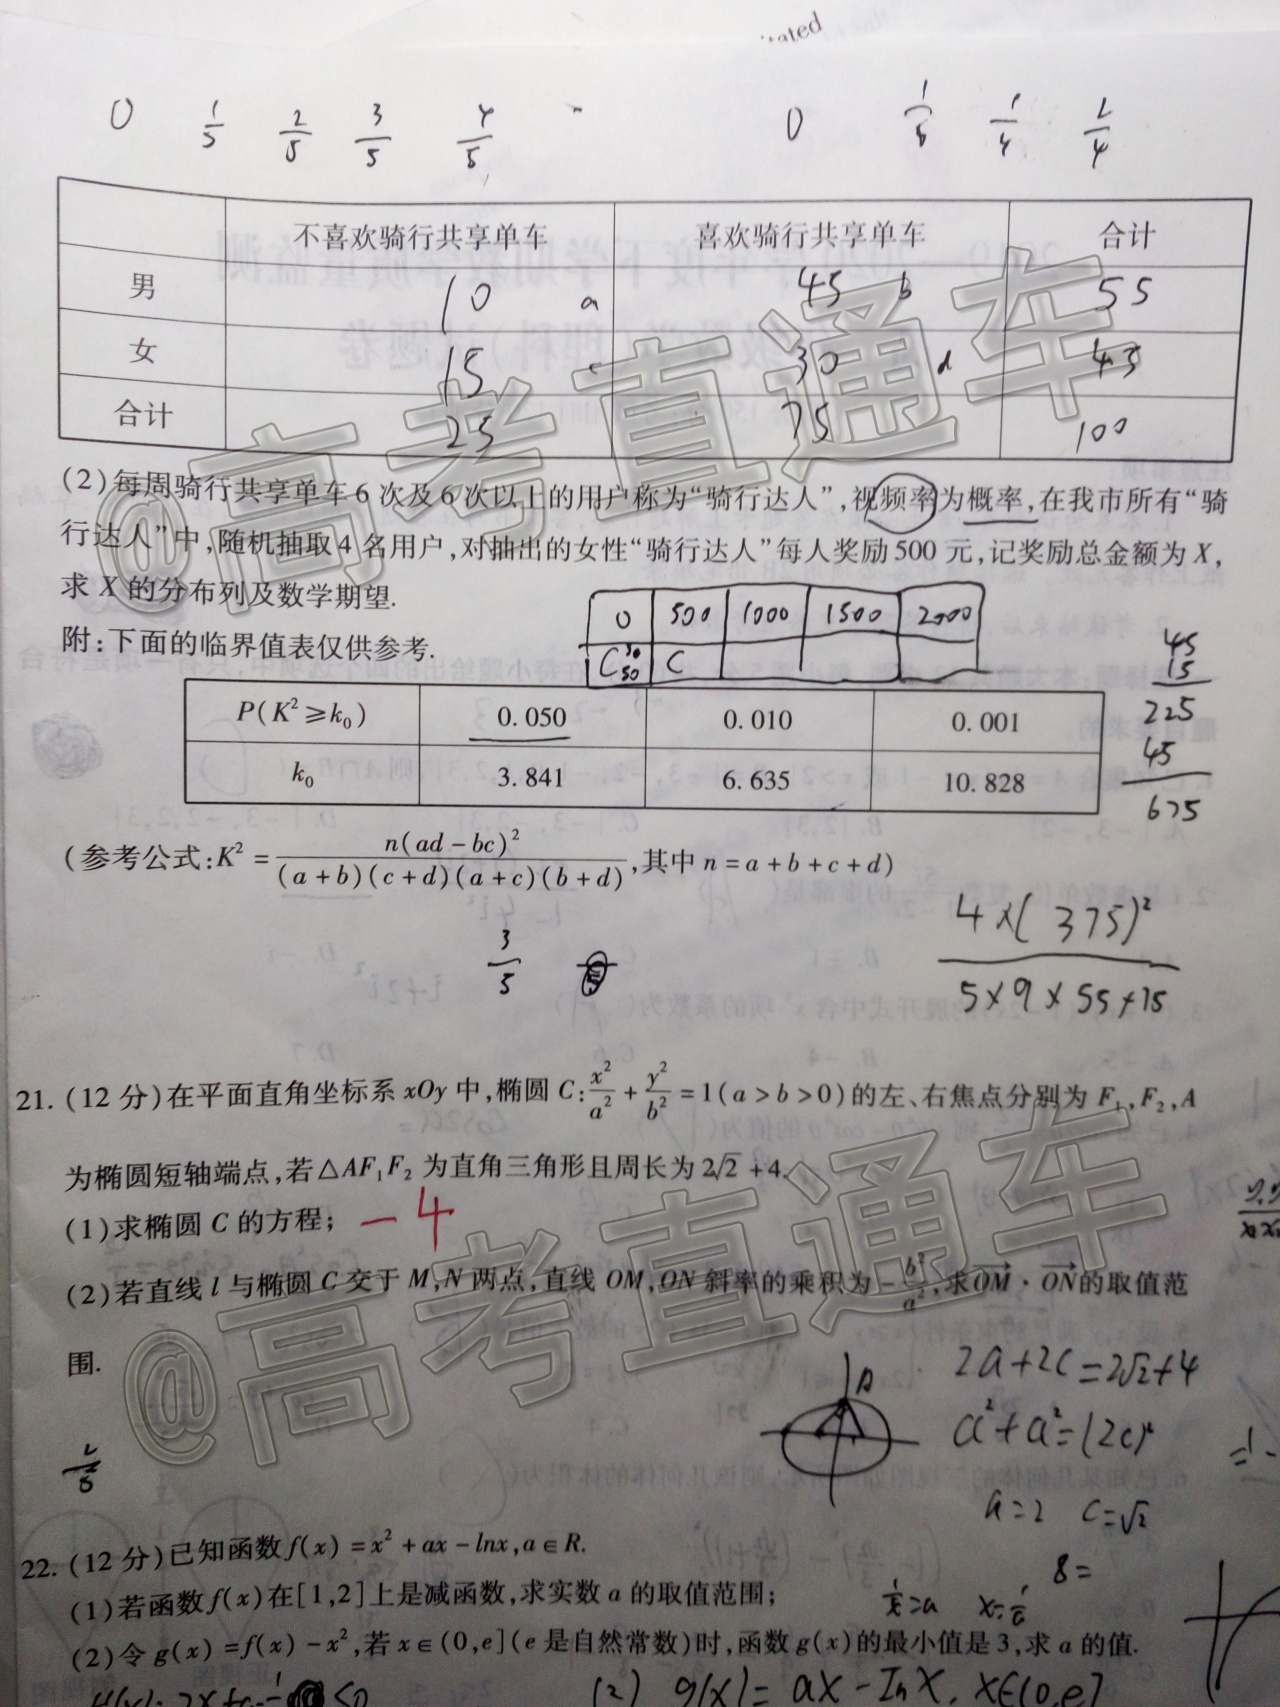 0 1/5 2/5 3/5 4/5 0
不喜欢骑行共享单车 喜欢骑行共享单车 合计
男 10 a 45 b 55
女 15 c 30 d 45
合计 25 75 100
(2)每周骑行共享单车6次及6次以上的用户称为“骑行达人”,视频率为概率,在我市所有“骑
行达人”中,随机抽取4名用户,对抽出的女性“骑行达人”每人奖励500元,记奖励总金额为X,
求X的分布列及数学期望.
0 500 1000 1500 2000
附:下面的临界值表仅供参考.
P(K²≥k₀) 0.050 0.010 0.001
k₀ 3.841 6.635 10.828
45
15
225
45
675
(参考公式:K²=n(ad-bc)²/((a+b)(c+d)(a+c)(b+d)),其中n=a+b+c+d)
4×(375)²
5×9×55×75
3/5
21.(12分)在平面直角坐标系xOy中,椭圆C:x²/a²+y²/b²=1(a>b>0)的左、右焦点分别为F₁,F₂,A
为椭圆短轴端点,若△AF₁F₂为直角三角形且周长为2√2+4.
(1)求椭圆C的方程; -4
(2)若直线l与椭圆C交于M,N两点,直线OM,ON斜率的乘积为-b²/a²,求OM·ON的取值范
围.
A
2a+2c=2√2+4
a²+a²=(2c)²
a=2 c=√2
22.(12分)已知函数f(x)=x²+ax-lnx,a∈R.
8=
(1)若函数f(x)在[1,2]上是减函数,求实数a的取值范围;
1/x=a
(2)令g(x)=f(x)-x²,若x∈(0,e](e是自然常数)时,函数g(x)的最小值是3,求a的值.
(2) g(x)=ax-lnx, x∈(0,e]
@高考直通车
@高考直通车